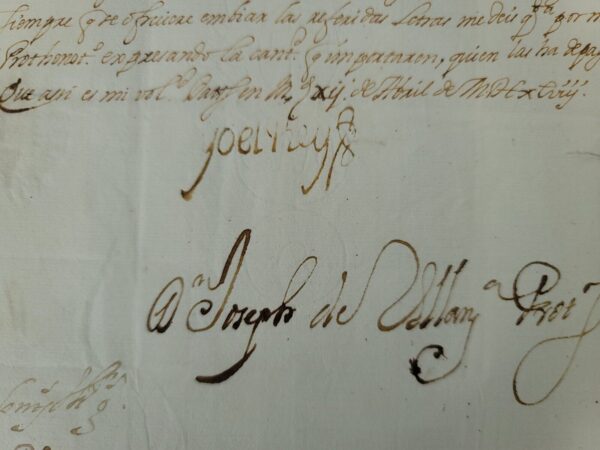 siempre q̃ se ofreciere embiar las referidas Letras me deis q.ta por m
Prothonot.o expresando la cant.d q̃ importaren, quien las ha de pag
Que assi es mi vol.d Datt en M.d A xij. de Abril de
Yo el Rey
D.n Joseph de Villan.a Prot.o